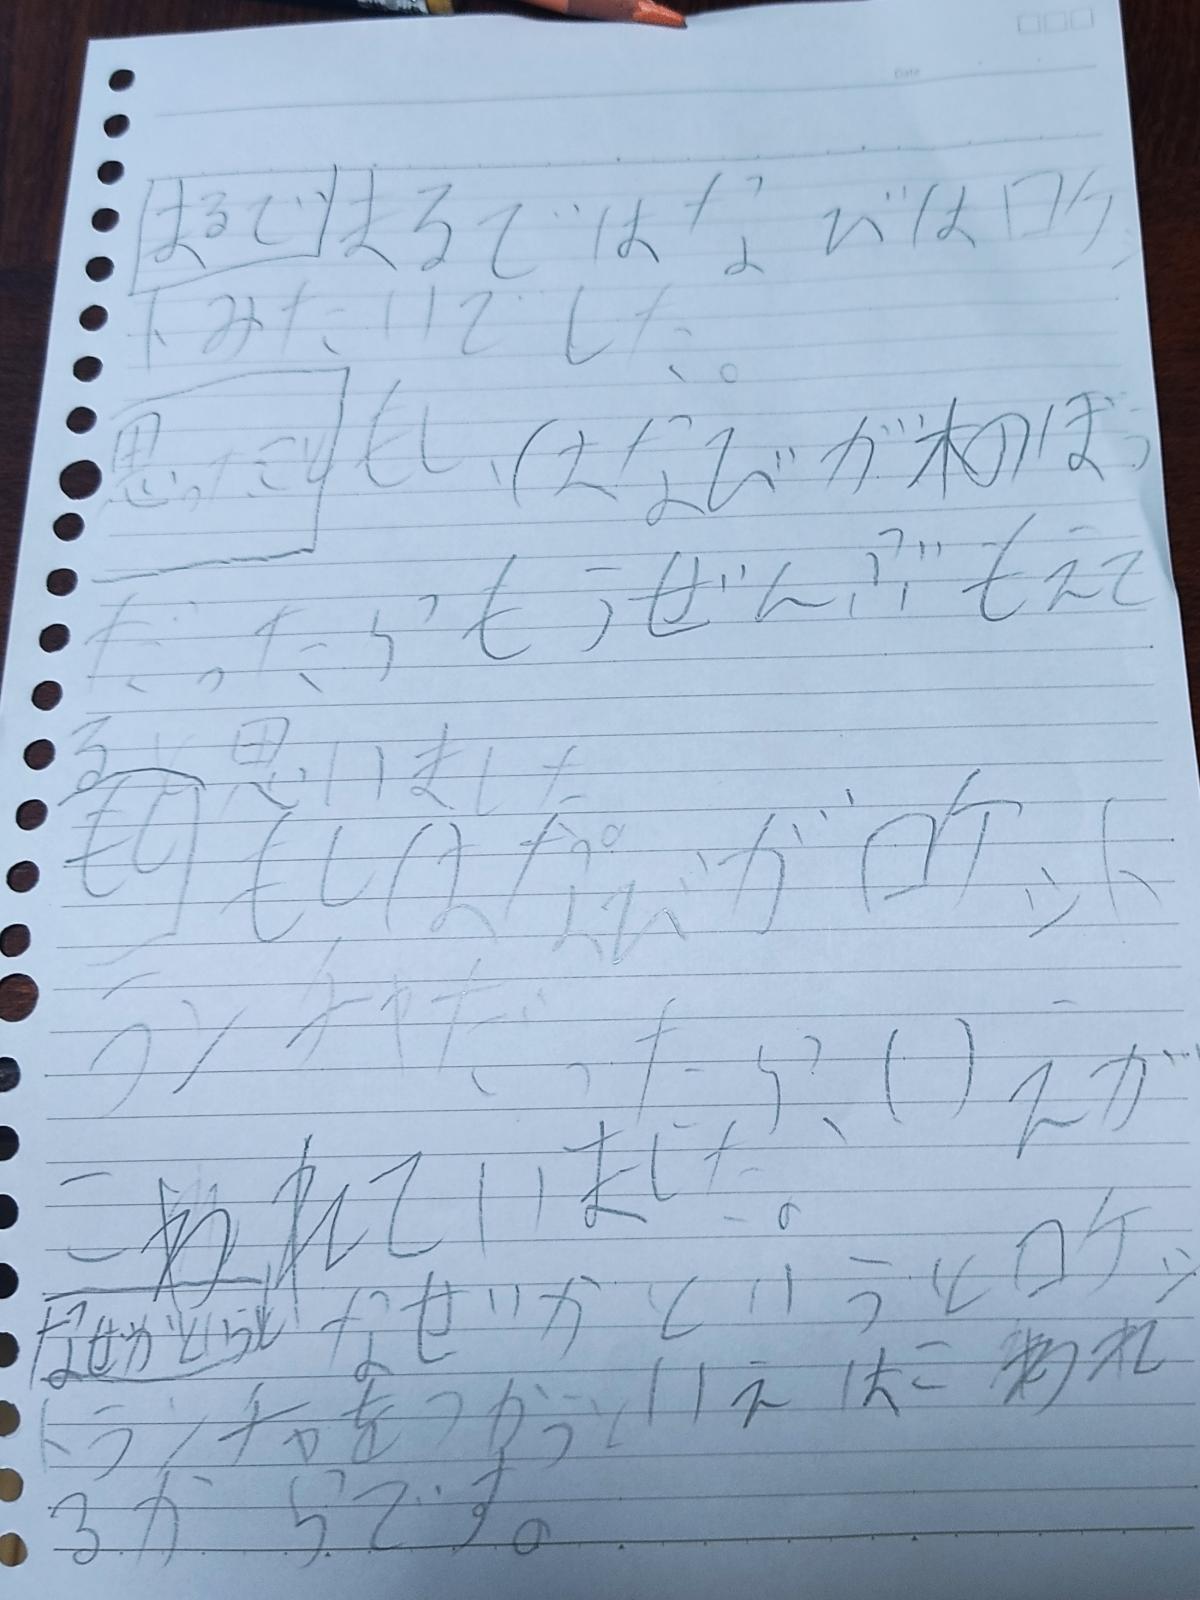 Date
まるで まるではなびはロケッ
トみたいでした。
思ったこと もし、はなびが木のぼう
だったらもうぜんぶもえて
ると思いました。
もし もしはなびがロケット
ランチャだったら、いえが
こわれていました。
なぜかというと なぜかというとロケッ
トランチャをつかうといえはこわれ
るからです。